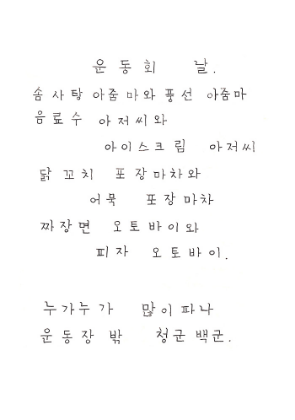 운동회 날.
솜사탕 아줌마와 풍선 아줌마
음료수 아저씨와
아이스크림 아저씨
닭꼬치 포장마차와
어묵 포장마차
짜장면 오토바이와
피자 오토바이.
누가누가 많이 파나
운동장 밖 청군 백군.